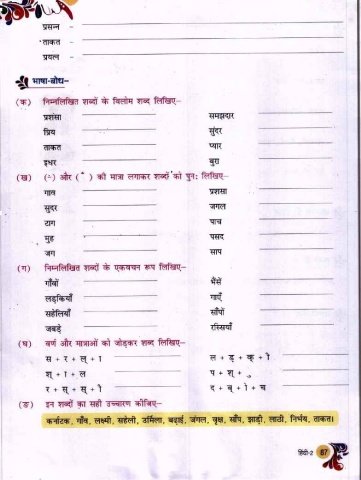 प्रसन्न -
ताकत -
प्रयत्न -
भाषा-बोध-
(क) निम्नलिखित शब्दों के विलोम शब्द लिखिए-
प्रशंसा समझदार
प्रिय सुंदर
ताकत प्यार
इधर बुरा
(ख) (ं) और (ँ) की मात्रा लगाकर शब्दों को पुनः लिखिए-
गाव प्रशसा
सुदर जगल
टाग पाच
मुह पसद
जग साप
(ग) निम्नलिखित शब्दों के एकवचन रूप लिखिए-
गाँवों भैंसें
लड़कियाँ गाएँ
सहेलियाँ साँपों
जबड़े रस्सियाँ
(घ) वर्ण और मात्राओं को जोड़कर शब्द लिखिए-
स + र + ल् + ा ल + ड़् + क् + ी
श् + ा + ल प + श् + ु
र + स् + स् + ी द + ब् + ा + च
(ङ) इन शब्दों का सही उच्चारण कीजिए-
कर्नाटक, गाँव, लक्ष्मी, सहेली, उर्मिला, बढ़ाई, जंगल, वृक्ष, साँप, झाड़ी, लाठी, निर्भय, ताकत।
हिंदी-2 67